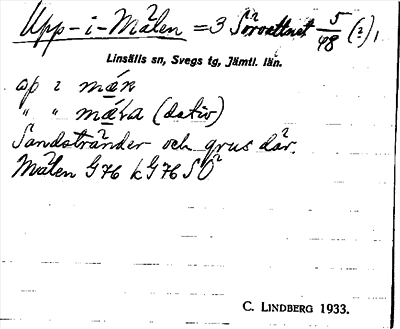 Upp-i-Mälen = 3 Sörvattnet 5/48 (?),
Linsälls sn, Svegs tg, Jämtl. län.
ɑp i mǣn
" " mǣra (dativ)
Sandstränder och grus där.
Mälen G76 k G76 SÖ
C. LINDBERG 1933.